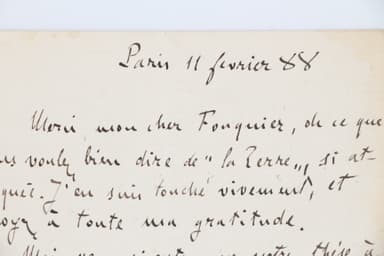 Paris 11 février 88
Merci, mon cher Fouquier, de ce que
us voulez bien dire de "la Terre", si at-
quée. J'en suis touché vivement, et
oyez à toute ma gratitude.